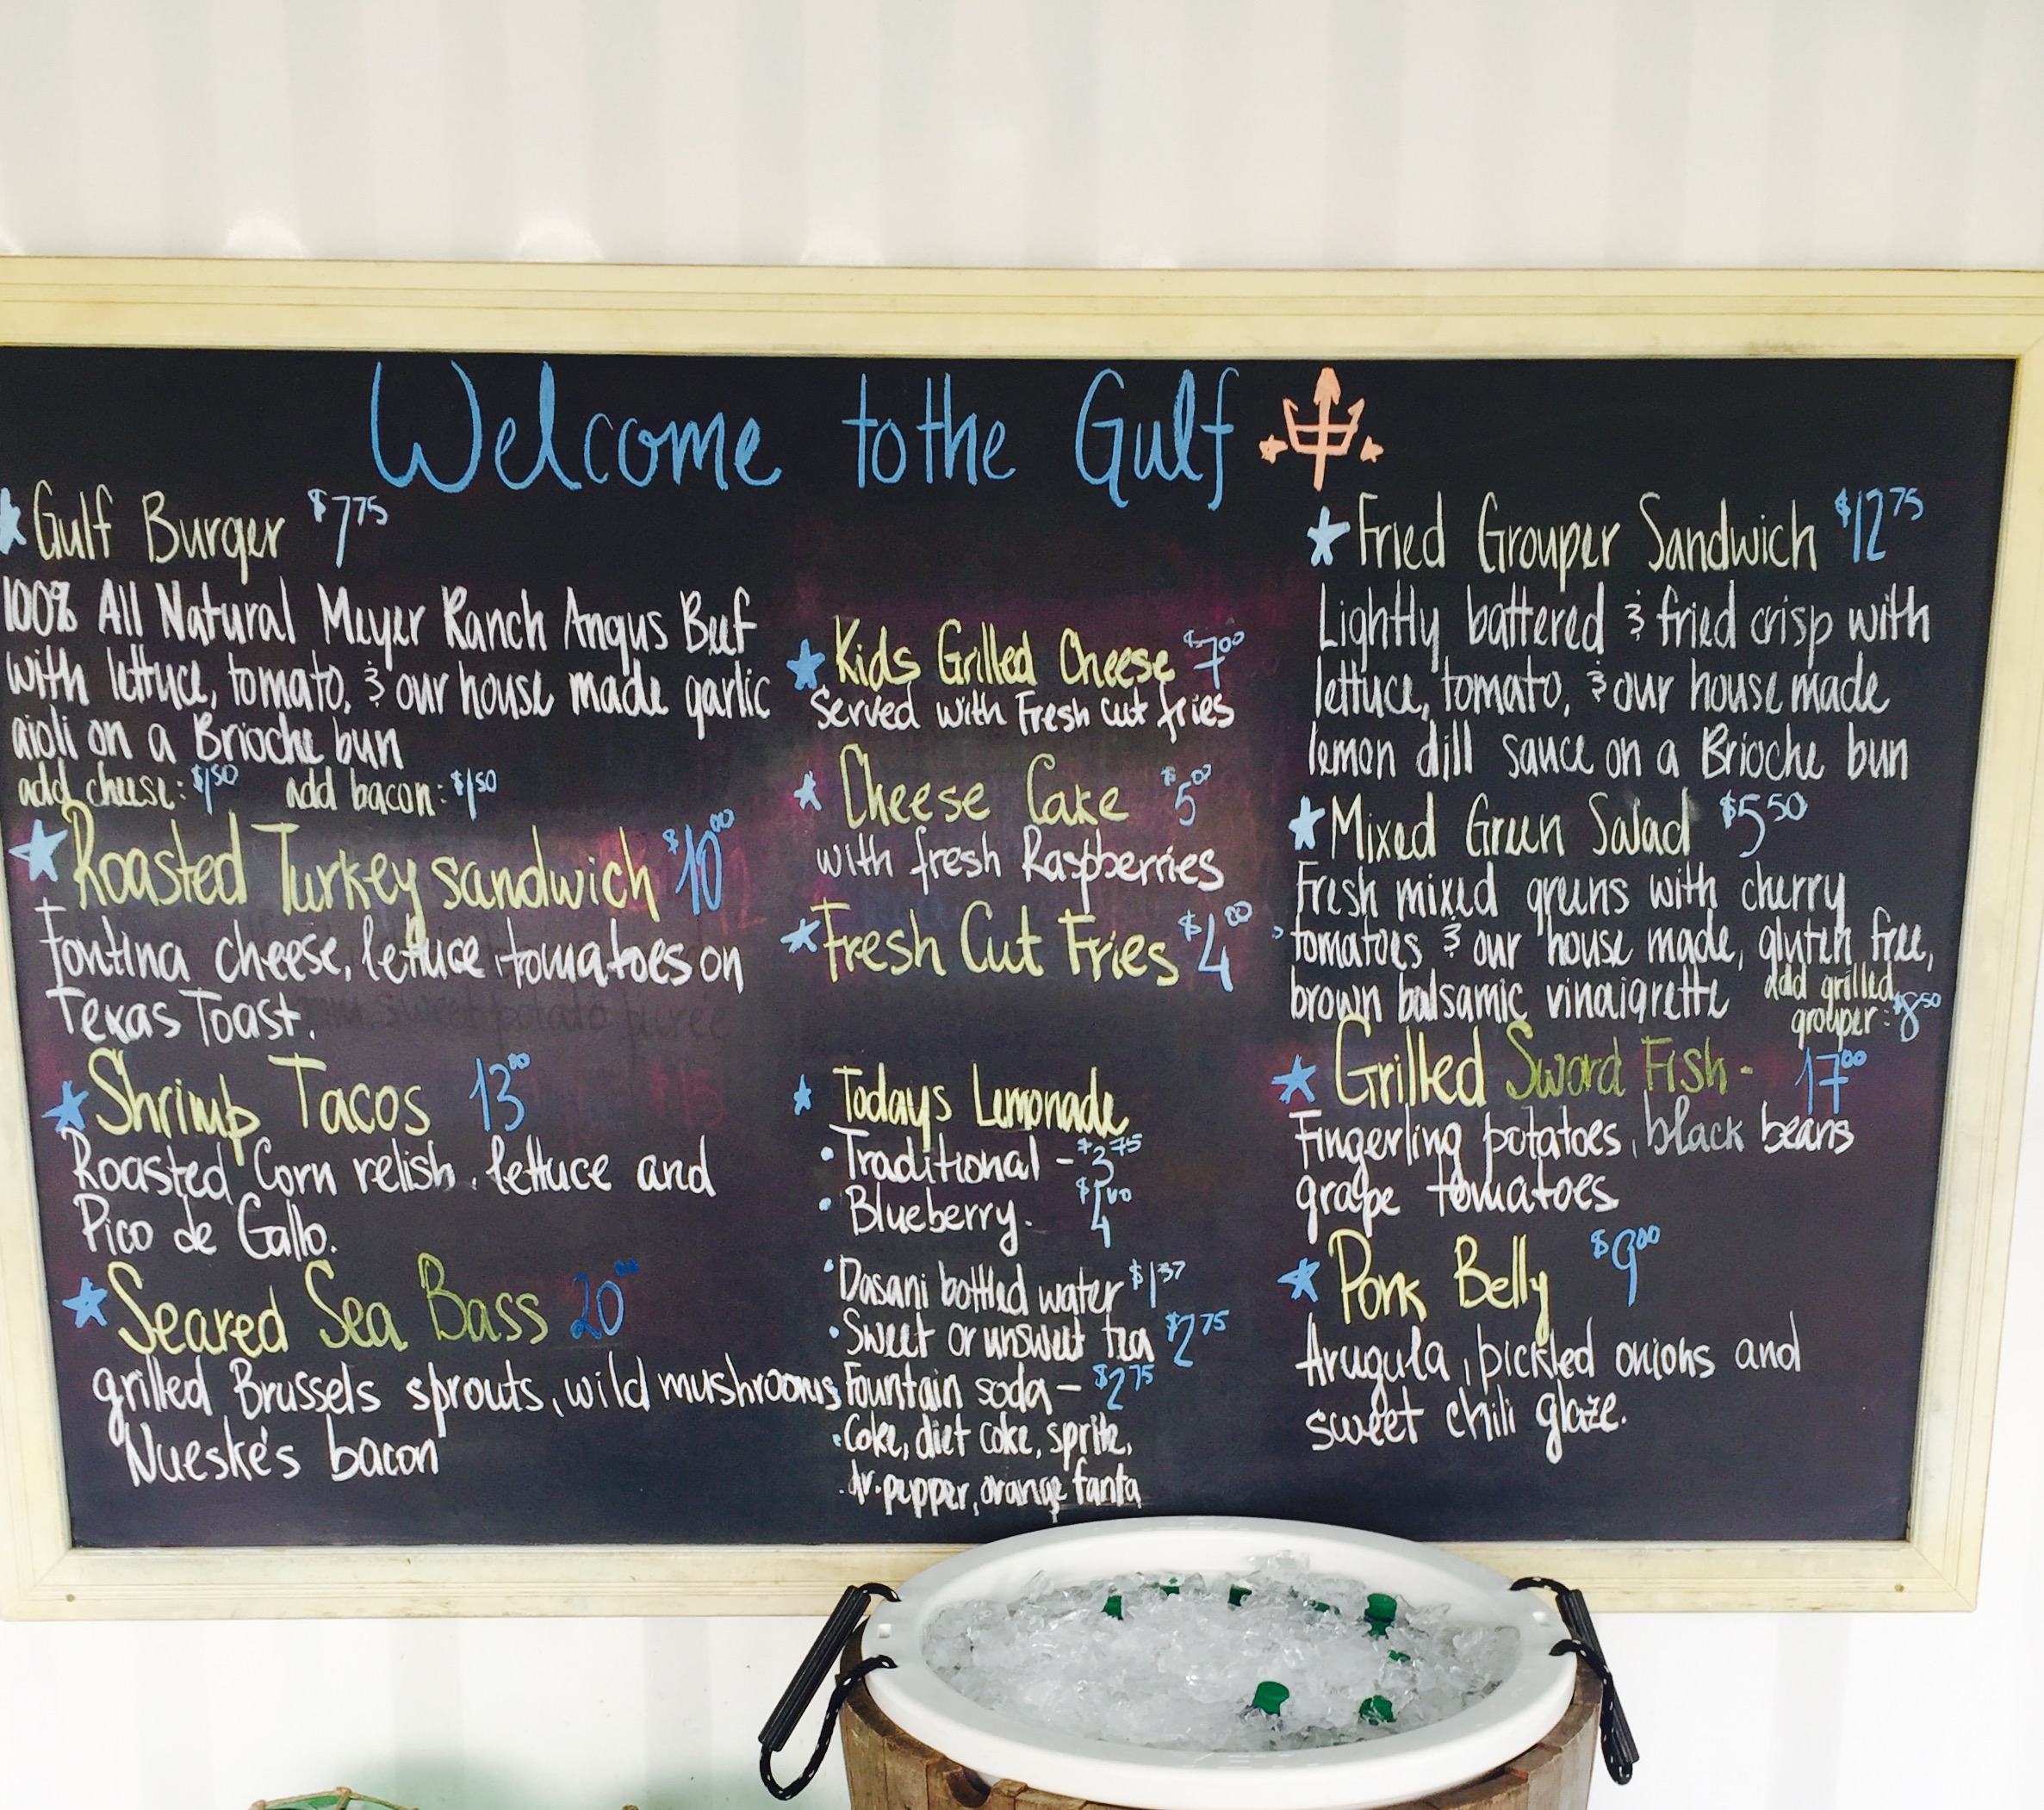 Welcome to the Gulf
Gulf Burger $7.75
100% All Natural Meyer Ranch Angus Beef
with lettuce, tomato, & our house made garlic
aioli on a Brioche bun
add cheese: $1.50 add bacon: $1.50
Roasted Turkey sandwich $10.00
Fontina cheese, lettuce, tomatoes on
Texas Toast.
Shrimp Tacos 13.00
Roasted Corn relish, lettuce and
Pico de Gallo.
Seared Sea Bass 20.00
grilled Brussels sprouts, wild mushrooms,
Nueske's bacon
Kids Grilled Cheese $7.00
Served with Fresh cut fries
Cheese Cake $5.00
with fresh Raspberries
Fresh Cut Fries $4.00
Todays Lemonade
Traditional - $3.75
Blueberry.
Dasani bottled water $1.37
Sweet or unsweet tea $2.75
Fountain soda - $2.75
Coke, diet coke, sprite,
dr. pepper, orange fanta
Fried Grouper Sandwich $12.75
Lightly battered & fried crisp with
lettuce, tomato, & our house made
lemon dill sauce on a Brioche bun
Mixed Green Salad $5.50
Fresh mixed greens with cherry
tomatoes & our house made, gluten free,
brown balsamic vinaigrette add grilled
grouper: $8.50
Grilled Sword Fish - 17.00
Fingerling potatoes, black beans
grape tomatoes
Pork Belly $9.00
Arugula, pickled onions and
sweet chili glaze.